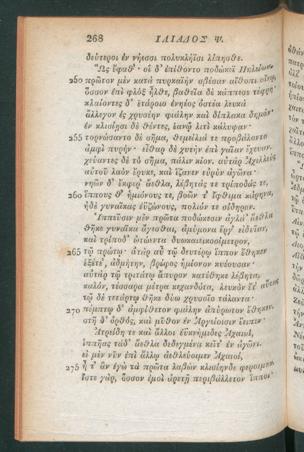 268 ΙΛΙΑΔΟΣ Ψ.
δεύτεροι ἐν νήεσσι πολυκλήϊσι λίπησθε.
Ὣς ἔφαθ'· οἱ δ' ἐπίθοντο ποδώκεϊ Πηλείωνι.
250 πρῶτον μὲν κατὰ πυρκαϊὴν σβέσαν αἴθοπι οἴνῳ,
ὅσσον ἐπὶ φλὸξ ἦλθε, βαθεῖα δὲ κάππεσε τέφρη·
κλαίοντες δ' ἑτάροιο ἐνηέος ὀστέα λευκὰ
ἄλλεγον ἐς χρυσέην φιάλην καὶ δίπλακα δημόν·
ἐν κλισίῃσι δὲ θέντες, ἑανῷ λιτὶ κάλυψαν·
255 τορνώσαντο δὲ σῆμα, θεμείλιά τε προβάλοντο
ἀμφὶ πυρήν· εἶθαρ δὲ χυτὴν ἐπὶ γαῖαν ἔχευαν.
χεύαντες δὲ τὸ σῆμα, πάλιν κίον. αὐτὰρ Ἀχιλλεὺς
αὐτοῦ λαὸν ἔρυκε, καὶ ἵζανεν εὐρὺν ἀγῶνα·
νηῶν δ' ἔκφερ' ἄεθλα, λέβητάς τε τρίποδάς τε,
260 ἵππους θ' ἡμιόνους τε, βοῶν τ' ἴφθιμα κάρηνα,
ἠδὲ γυναῖκας ἐϋζώνους, πολιόν τε σίδηρον.
Ἱππεῦσιν μὲν πρῶτα ποδώκεσιν ἀγλά' ἄεθλα
θῆκε γυναῖκα ἄγεσθαι, ἀμύμονα ἔργ' εἰδυῖαν,
καὶ τρίποδ' ὠτώεντα δυωκαιεικοσίμετρον,
265 τῷ πρώτῳ· ἀτὰρ αὖ τῷ δευτέρῳ ἵππον ἔθηκεν
ἑξέτε', ἀδμήτην, βρέφος ἡμίονον κυέουσαν·
αὐτὰρ τῷ τριτάτῳ ἄπυρον κατέθηκε λέβητα,
καλόν, τέσσαρα μέτρα κεχανδότα, λευκὸν ἔτ' αὔτως·
τῷ δὲ τετάρτῳ θῆκε δύω χρυσοῖο τάλαντα·
270 πέμπτῳ δ' ἀμφίθετον φιάλην ἀπύρωτον ἔθηκεν.
στῆ δ' ὀρθός, καὶ μῦθον ἐν Ἀργείοισιν ἔειπεν·
Ἀτρείδη τε καὶ ἄλλοι ἐϋκνήμιδες Ἀχαιοί,
ἱππῆας τάδ' ἄεθλα δεδεγμένα κεῖτ' ἐν ἀγῶνι.
εἰ μὲν νῦν ἐπὶ ἄλλῳ ἀεθλεύοιμεν Ἀχαιοί,
275 ἦ τ' ἂν ἐγὼ τὰ πρῶτα λαβὼν κλισίηνδε φεροίμην.
ἴστε γάρ, ὅσσον ἐμοὶ ἀρετῇ περιβάλλετον ἵπποι·